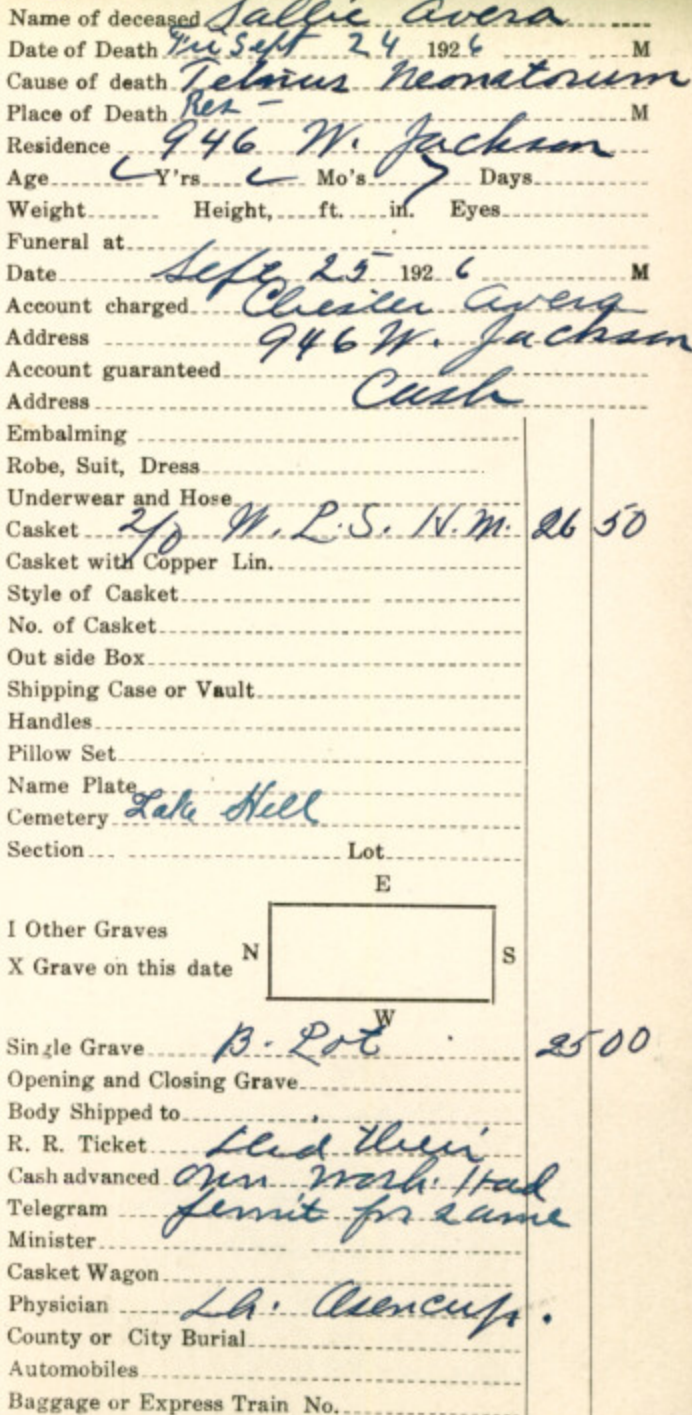 Name of deceased Sallie Avera
Date of Death Fri Sept 24 1926 M
Cause of death Tetnus Neonatorum
Place of Death Res - M
Residence 946 W. Jackson
Age Y'rs Mo's 7 Days
Weight Height, ft. in. Eyes
Funeral at
Date Sept 25 1926 M
Account charged Chester Avera
Address 946 W. Jackson
Account guaranteed
Address Cash
Embalming
Robe, Suit, Dress
Underwear and Hose
Casket 2/0 W. L. S. H. M. 26 50
Casket with Copper Lin.
Style of Casket
No. of Casket
Out side Box
Shipping Case or Vault
Handles
Pillow Set
Name Plate
Cemetery Lake Hill
Section Lot
E
I Other Graves
N S
X Grave on this date
W
Single Grave B. Lot 25 00
Opening and Closing Grave
Body Shipped to
R. R. Ticket their
Cash advanced own work. Had
Telegram permit for same
Minister
Casket Wagon
Physician
County or City Burial
Automobiles
Baggage or Express Train No.